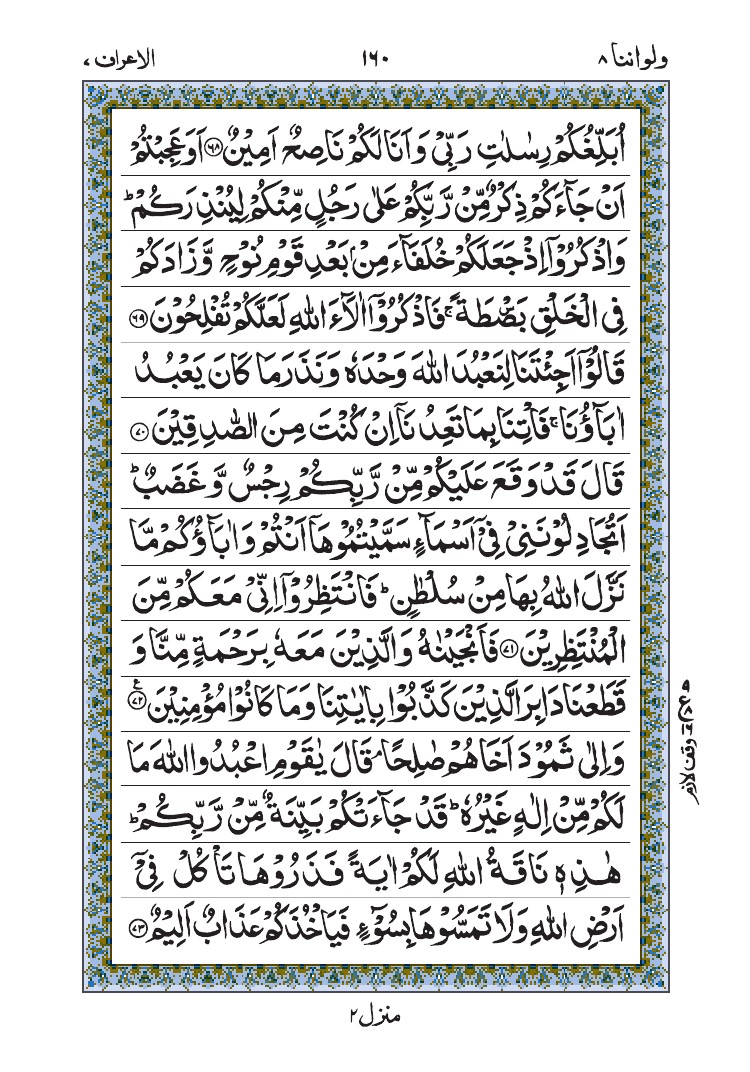 ولواننا ۸
۱۶۰
الاعراف ۷
اُبَلِّغُكُمْ رِسٰلٰتِ رَبِّيْ وَ اَنَا لَكُمْ نَاصِحٌ اَمِيْنٌ ۝۶۸ اَوَ عَجِبْتُمْ
اَنْ جَآءَكُمْ ذِكْرٌ مِّنْ رَّبِّكُمْ عَلٰى رَجُلٍ مِّنْكُمْ لِيُنْذِرَكُمْ ؕ
وَ اذْكُرُوْۤا اِذْ جَعَلَكُمْ خُلَفَآءَ مِنْۢ بَعْدِ قَوْمِ نُوْحٍ وَّ زَادَكُمْ
فِي الْخَلْقِ بَصْۜطَةً ۚ فَاذْكُرُوْۤا اٰلَآءَ اللّٰهِ لَعَلَّكُمْ تُفْلِحُوْنَ ۝۶۹
قَالُوْۤا اَجِئْتَنَا لِنَعْبُدَ اللّٰهَ وَحْدَهٗ وَ نَذَرَ مَا كَانَ يَعْبُدُ
اٰبَآؤُنَا ۚ فَاْتِنَا بِمَا تَعِدُنَاۤ اِنْ كُنْتَ مِنَ الصّٰدِقِيْنَ ۝۷۰
قَالَ قَدْ وَقَعَ عَلَيْكُمْ مِّنْ رَّبِّكُمْ رِجْسٌ وَّ غَضَبٌ ؕ
اَتُجَادِلُوْنَنِيْ فِيْۤ اَسْمَآءٍ سَمَّيْتُمُوْهَاۤ اَنْتُمْ وَ اٰبَآؤُكُمْ مَّا
نَزَّلَ اللّٰهُ بِهَا مِنْ سُلْطٰنٍ ؕ فَانْتَظِرُوْۤا اِنِّيْ مَعَكُمْ مِّنَ
الْمُنْتَظِرِيْنَ ۝۷۱ فَاَنْجَيْنٰهُ وَ الَّذِيْنَ مَعَهٗ بِرَحْمَةٍ مِّنَّا وَ
قَطَعْنَا دَابِرَ الَّذِيْنَ كَذَّبُوْا بِاٰيٰتِنَا وَ مَا كَانُوْا مُؤْمِنِيْنَ ۝۷۲ ع
وَ اِلٰى ثَمُوْدَ اَخَاهُمْ صٰلِحًا ۘ قَالَ يٰقَوْمِ اعْبُدُوا اللّٰهَ مَا
لَكُمْ مِّنْ اِلٰهٍ غَيْرُهٗ ؕ قَدْ جَآءَتْكُمْ بَيِّنَةٌ مِّنْ رَّبِّكُمْ ؕ
هٰذِهٖ نَاقَةُ اللّٰهِ لَكُمْ اٰيَةً فَذَرُوْهَا تَاْكُلْ فِيْۤ
اَرْضِ اللّٰهِ وَ لَا تَمَسُّوْهَا بِسُوْٓءٍ فَيَاْخُذَكُمْ عَذَابٌ اَلِيْمٌ ۝۷۳
وقف لازم
منزل ۲